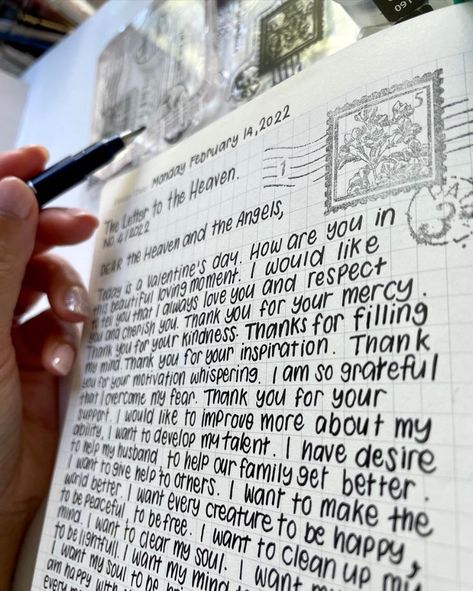 Monday February 14, 2022
The Letter to the Heaven.
No. 4/2022
DEAR the Heaven and the Angels,
Today is a Valentine's day. How are you in
this beautiful loving moment. I would like
to tell you that I always love you and respect
you and cherish you. Thank you for your mercy.
Thank you for your kindness. Thanks for filling
my mind. Thank you for your inspiration. Thank
you for your motivation whispering. I am so grateful
that I overcome my fear. Thank you for your
support. I would like to improve more about my
ability. I want to develop my talent. I have desire
to help my husband, to help our family get better.
I want to give help to others. I want to make the
world better. I want every creature to be happy,
to be peaceful, to be free. I want to clean up my
mind. I want to clear my soul. I want my
to be lightfull. I want my mind to
I want my soul to be
am happy with
every
5
1
3